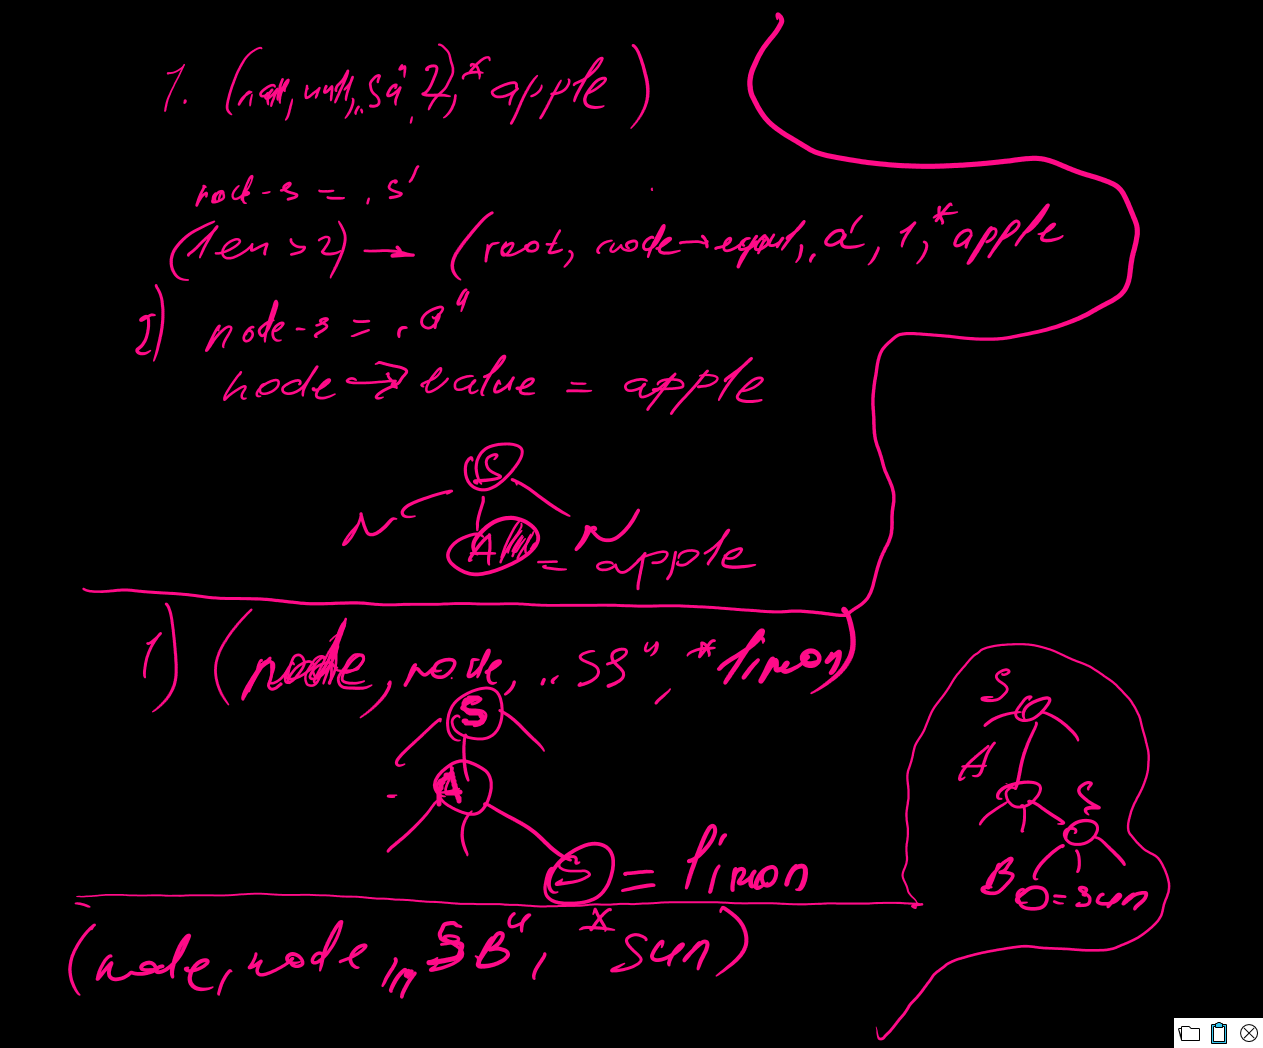 1. (null, null, "sa", 2), *apple)
node-s = "s"
(len > 2) → (root, node→equal, "a", 1, *apple
2) node-s = "a"
node → value = apple
S
N A N
= apple
1) (node, node, "SS", *limon)
S
A
S = limon
(node, node, "SB", *sun)
S
A
S
B = sun